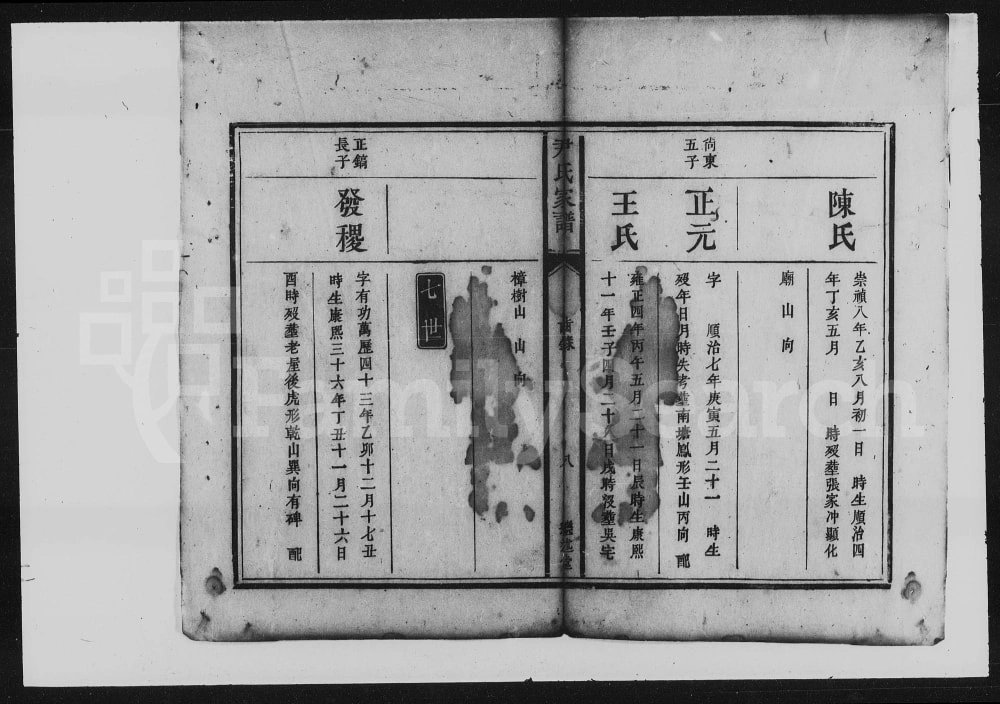 陳氏
崇禎八年乙亥八月初一日 時生順治四
年丁亥五月 日 時歿塟張家冲顯化
廟山向
尙東
五子
正元
字 順治七年庚寅五月二十一 時生
歿年日月時失考塟南塘鳳形壬山丙向 配
王氏
雍正四年丙午五月二十一日辰時生康熙
十一年壬子四月二十八日戌時歿塟吳宅
尹氏家譜
八
樟樹山 山 向
七世
正鎬
長子
發稷
字有功萬歷四十三年乙卯十二月十七丑
時生康熙三十六年丁丑十一月二十六日
酉時歿塟老屋後虎形乾山巽向有碑 配
FamilySearch